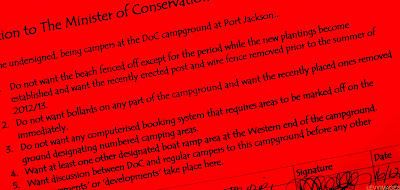 tion to The Minister of Conservation,
he undersigned, being campers at the DoC campground at Port Jackson..
Do not want the beach fenced off except for the period while the new plantings become
established and want the recently erected post and wire fence removed prior to the summer of
2012/13.
2. Do not want bollards on any part of the campground and want the recently placed ones removed
immediately.
3. Do not want any computerised booking system that requires areas to be marked off on the
ground designating numbered camping areas.
4. Want at least one other designated boat ramp area at the Western end of the campground.
5. Want discussion between DoC and regular campers to this campground before any other
' or 'developments' take place here.
Signature
Date